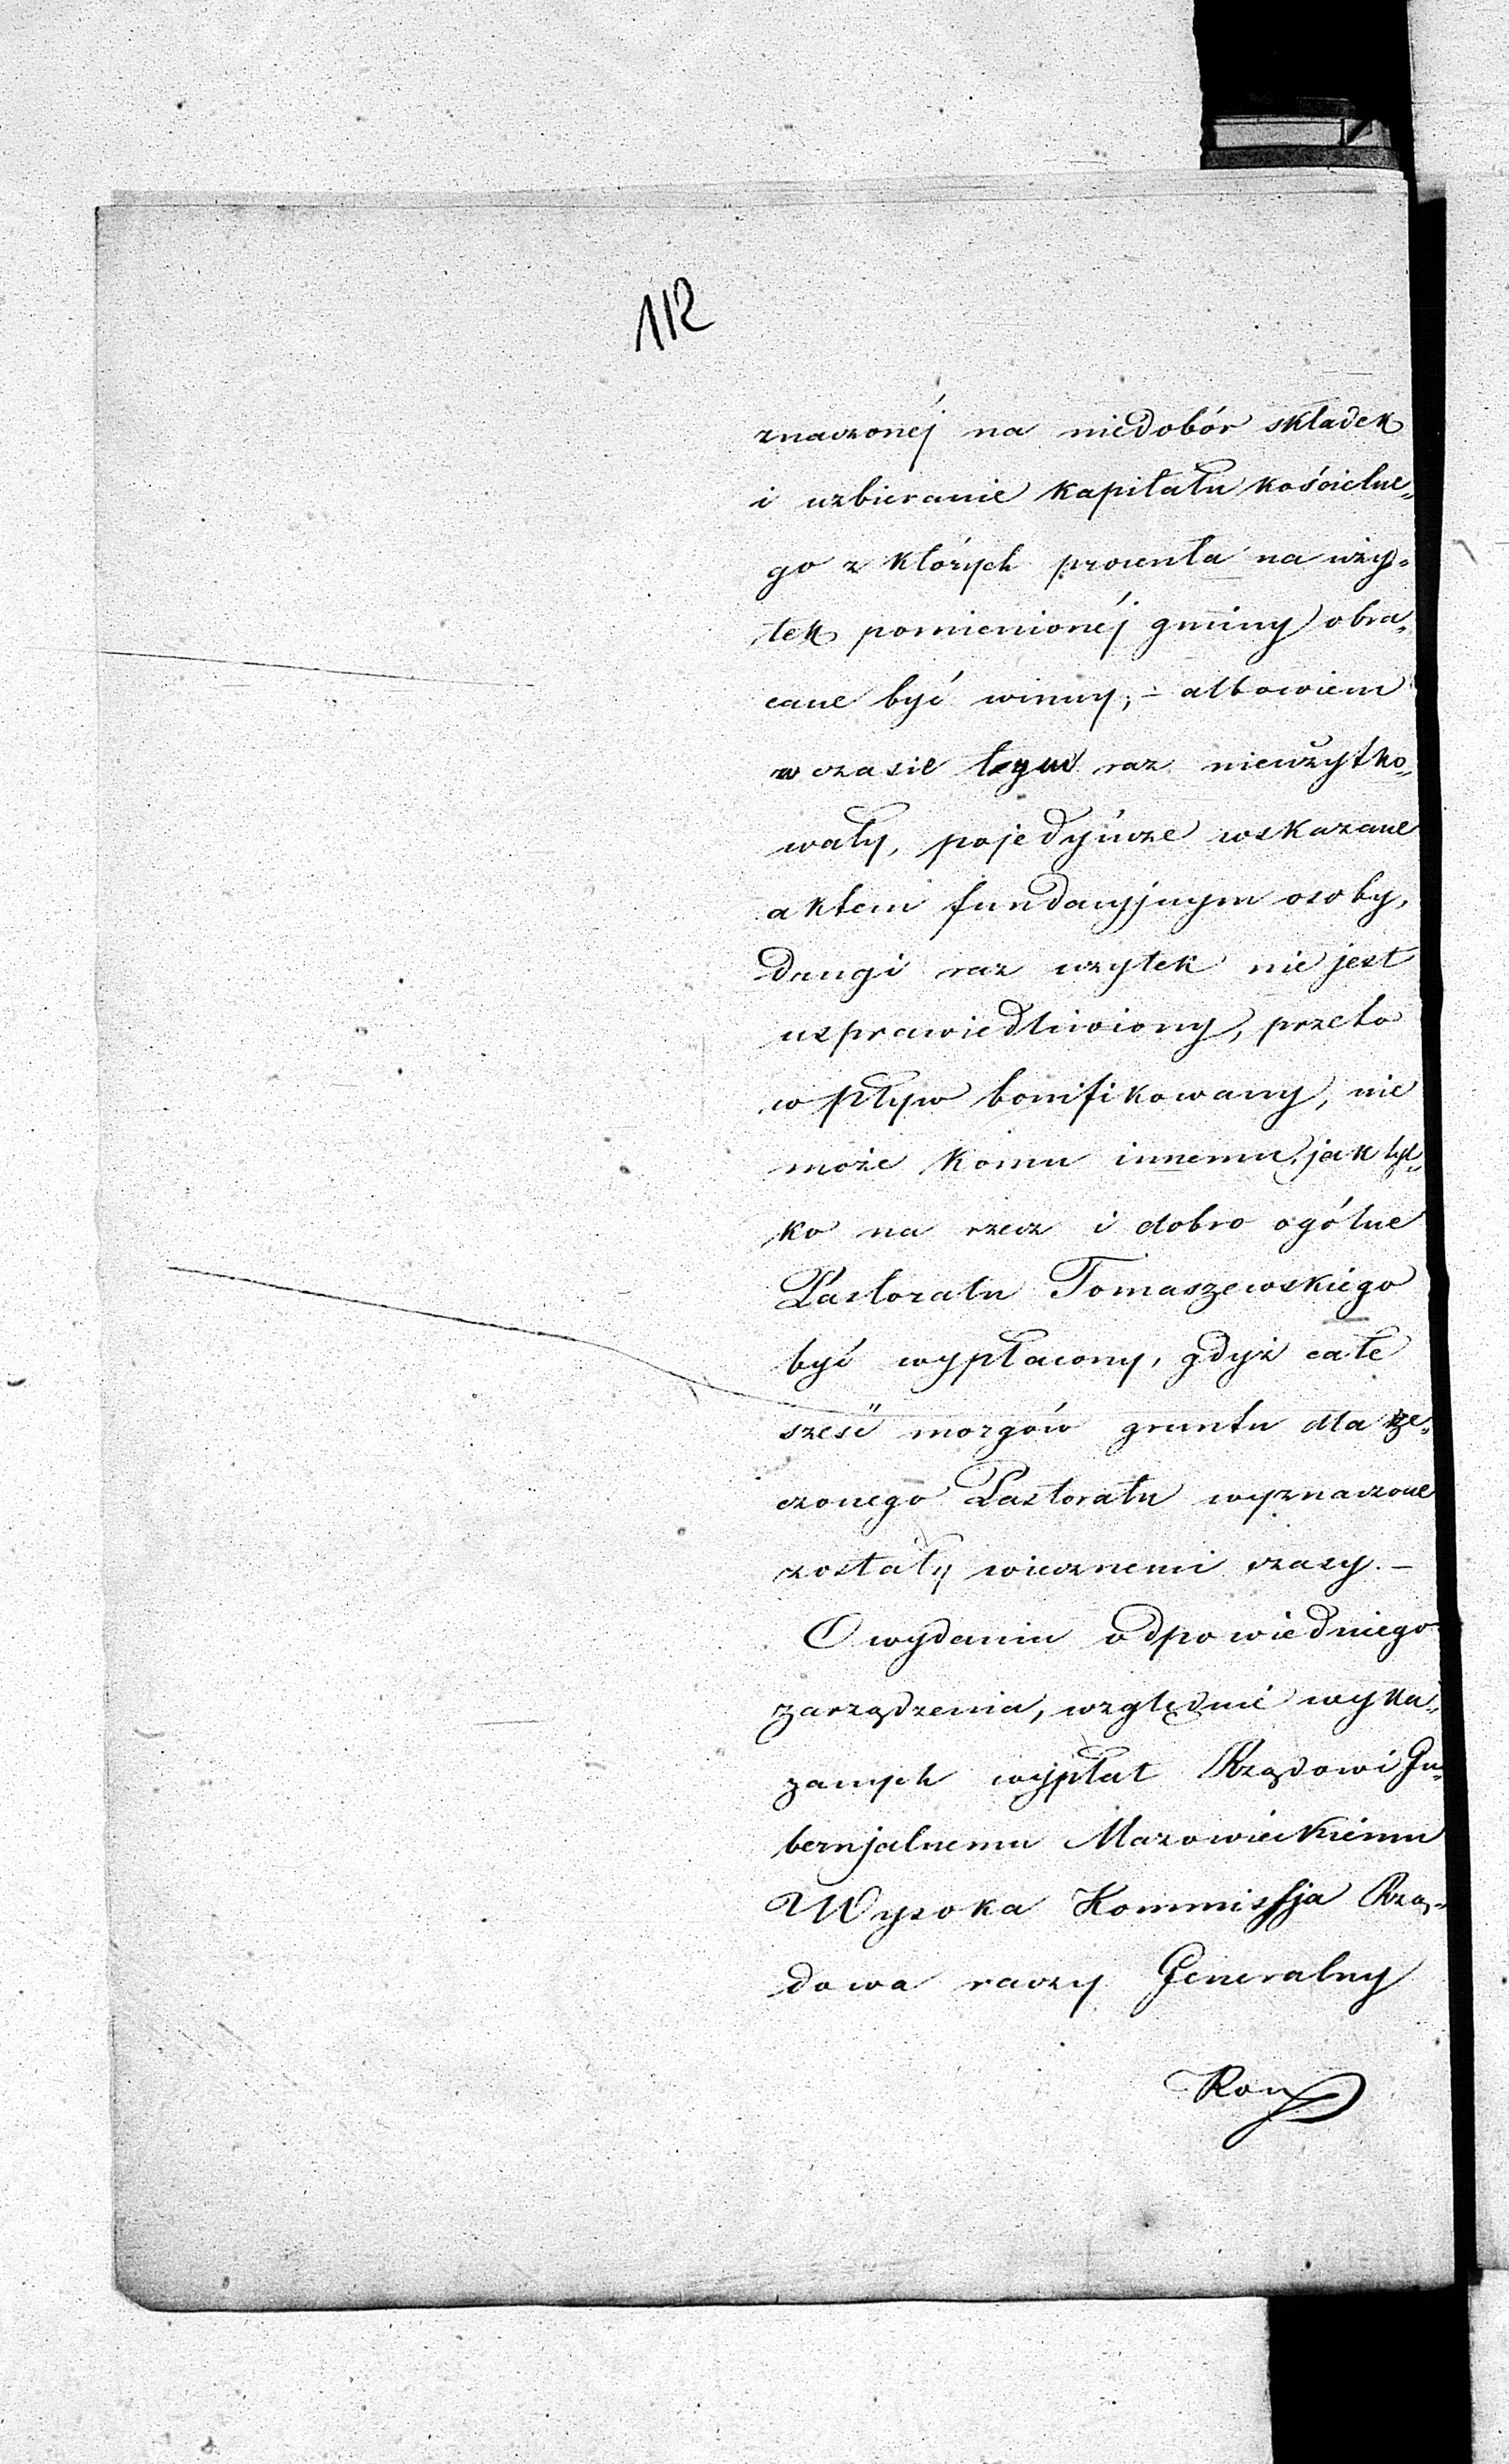 112
znaczonéj na niedobór składek
i uzbieranie Kapitału Kościelne„
go z których procenta na uży„
tek pomienionéj gminy obra„
cane być winny, – albowiem
w czasie tym raz nieużytko„
wały, pojedyńcze wskazane
aktem fundacyjnym osoby,
drugi raz użytek nie jest
usprawiedliwiony, przeto
wpływ bonifikowany, nie
może komu innemu, jak tyl„
ko na rzecz i dobro ogólne
Pastoratu Tomaszewskiego
być wypłacony, gdyż całe
sześć morgów gruntu dla rze„
czonego Pastoratu wyznaczone
zostały wiecznemi czasy. –
O wydaniu odpowiedniego
zarządzenia, względnie wyka„
zanych wypłat Rządowi Gu„
bernjalnemu Mazowieckiemu
Wysoka Kommissja Rzą„
dowa raczy Generalny
Kon